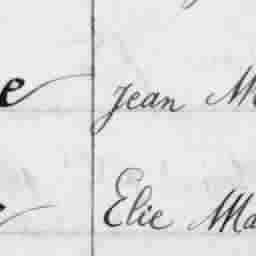 e Jean M
e Elie Ma